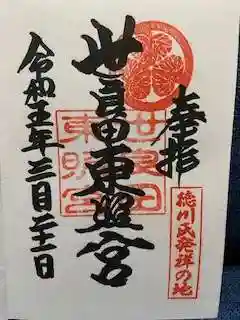 奉拝
世良田東照宮
世良田
東照宮
徳川氏発祥の地
令和五年三月二十三日